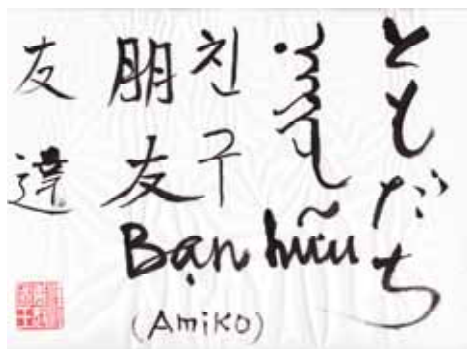 ともだち
친구
朋友
友達
Bạn hữu
(Amiko)